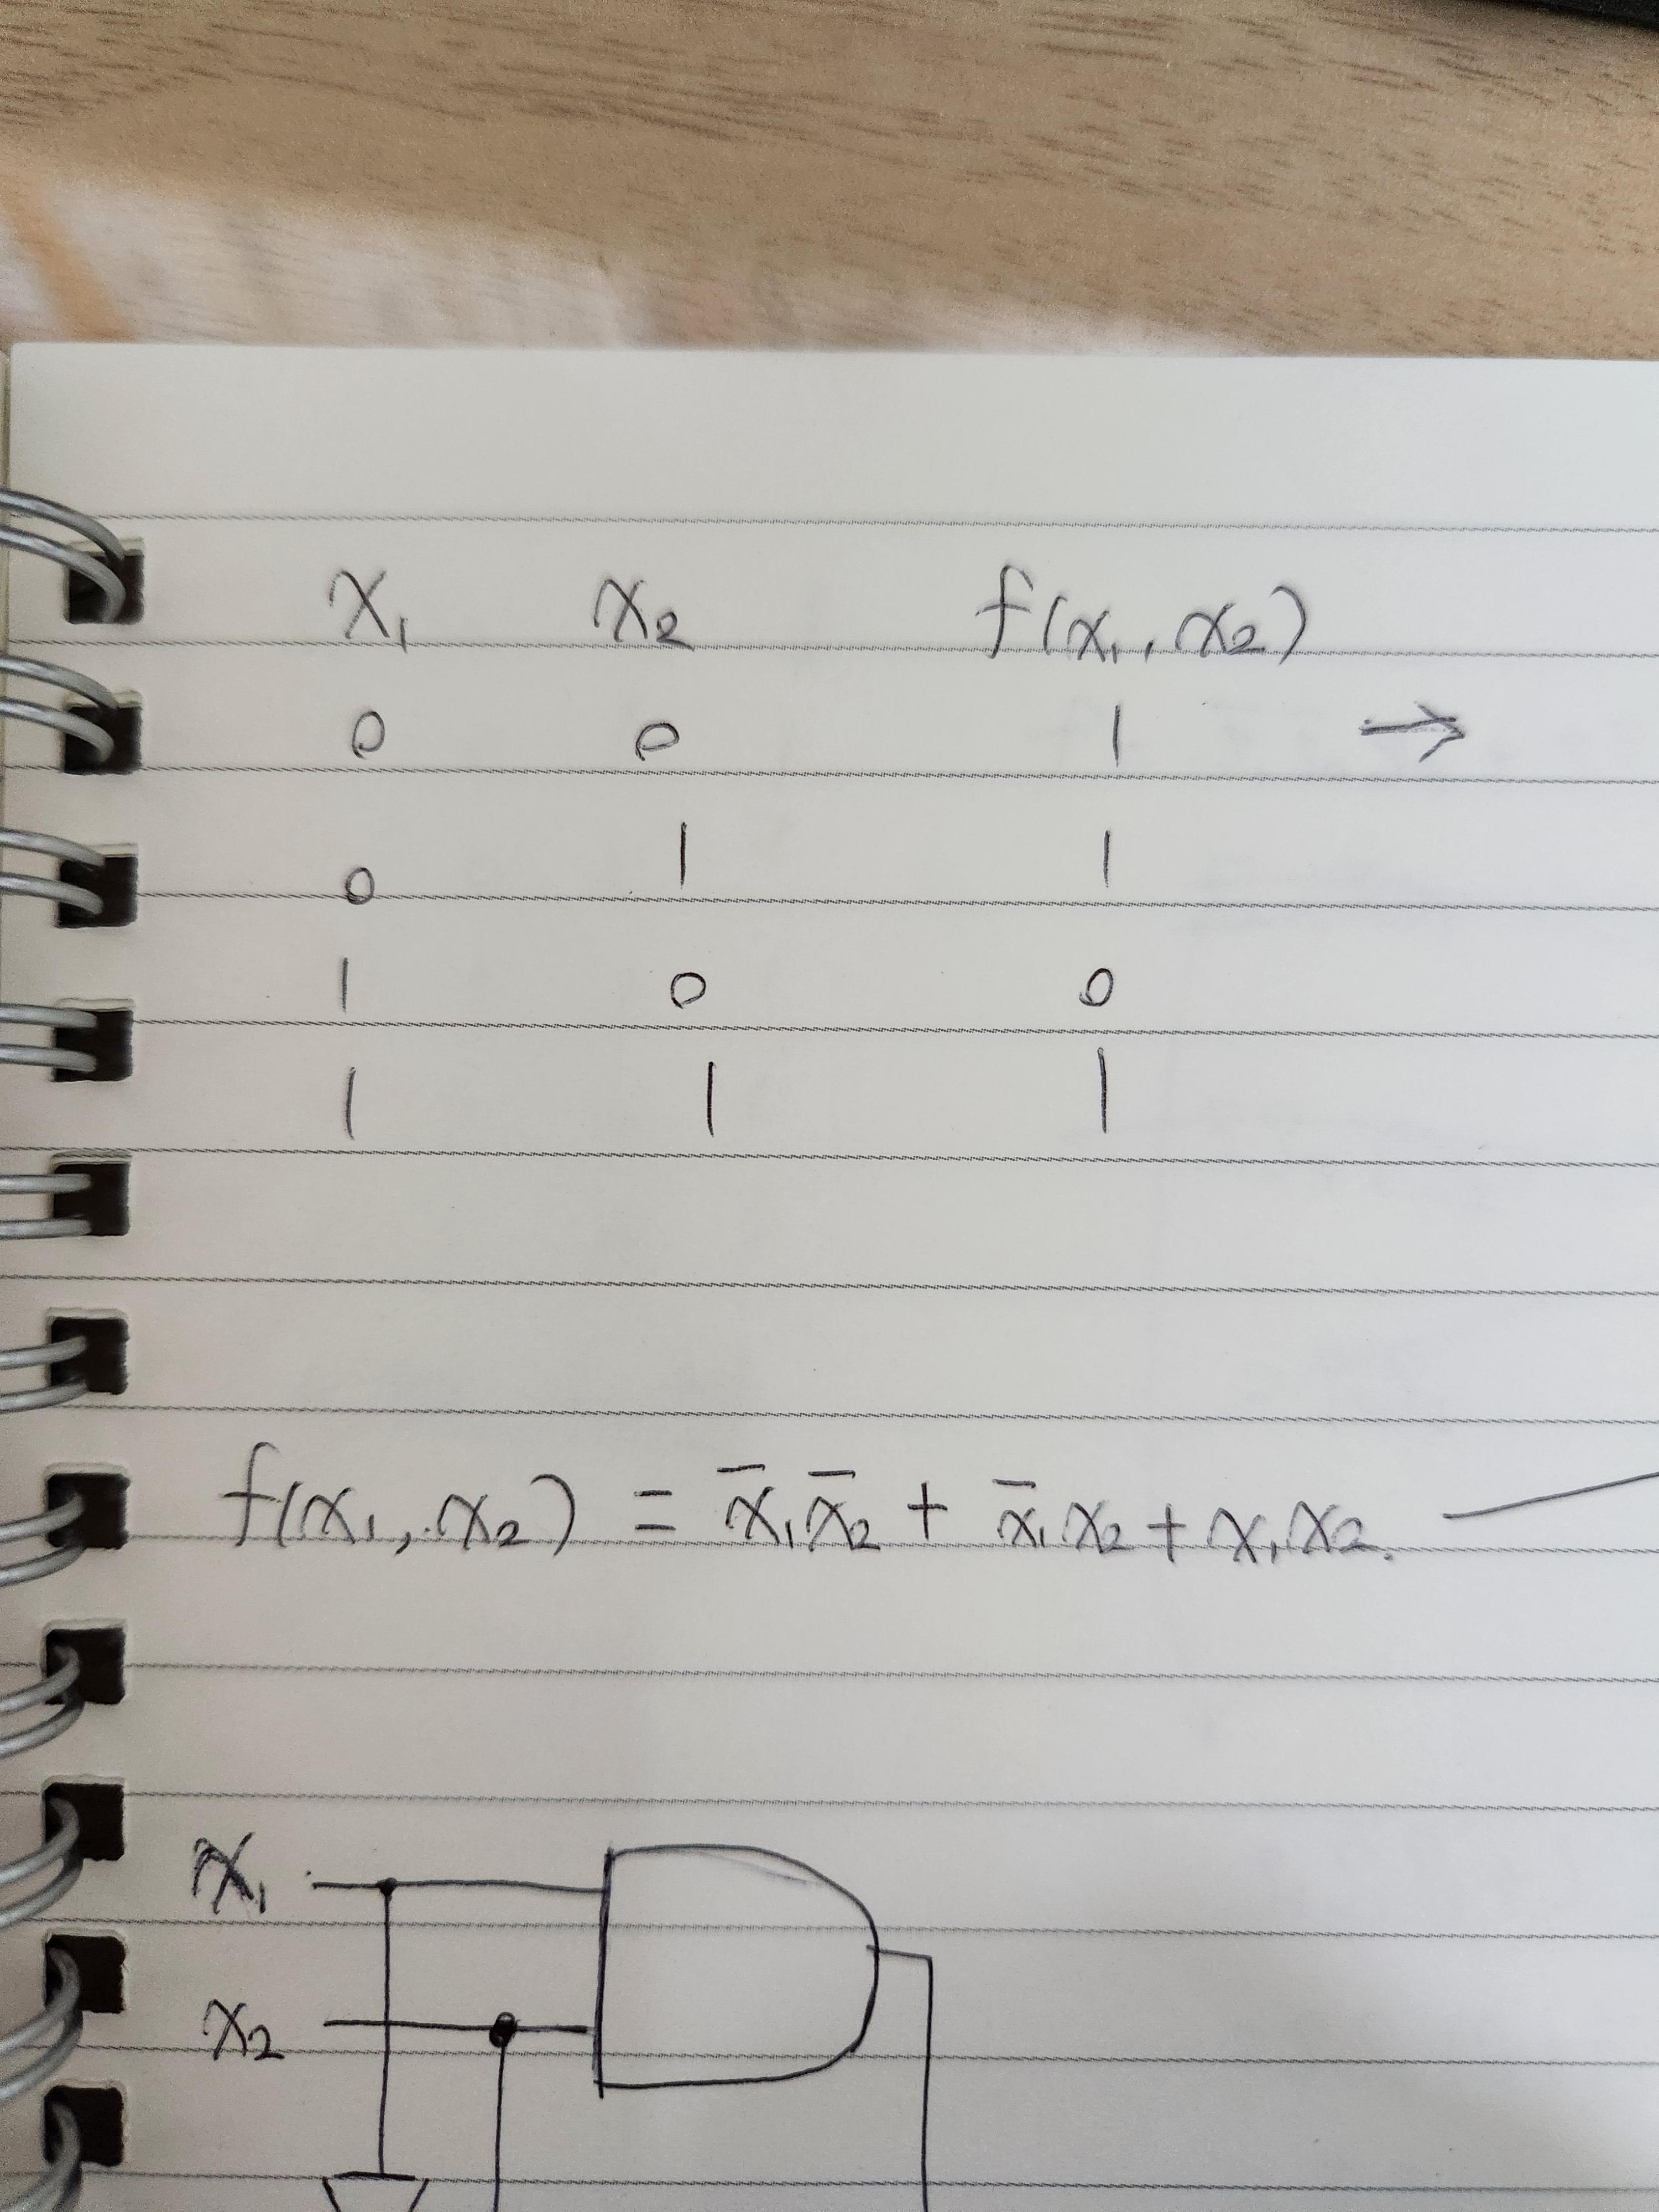 x₁ x₂ f(x₁, x₂)
0 0 1 →
0 1 1
1 0 0
1 1 1
f(x₁, x₂) = x̄₁x̄₂ + x̄₁x₂ + x₁x₂.
x₁
x₂